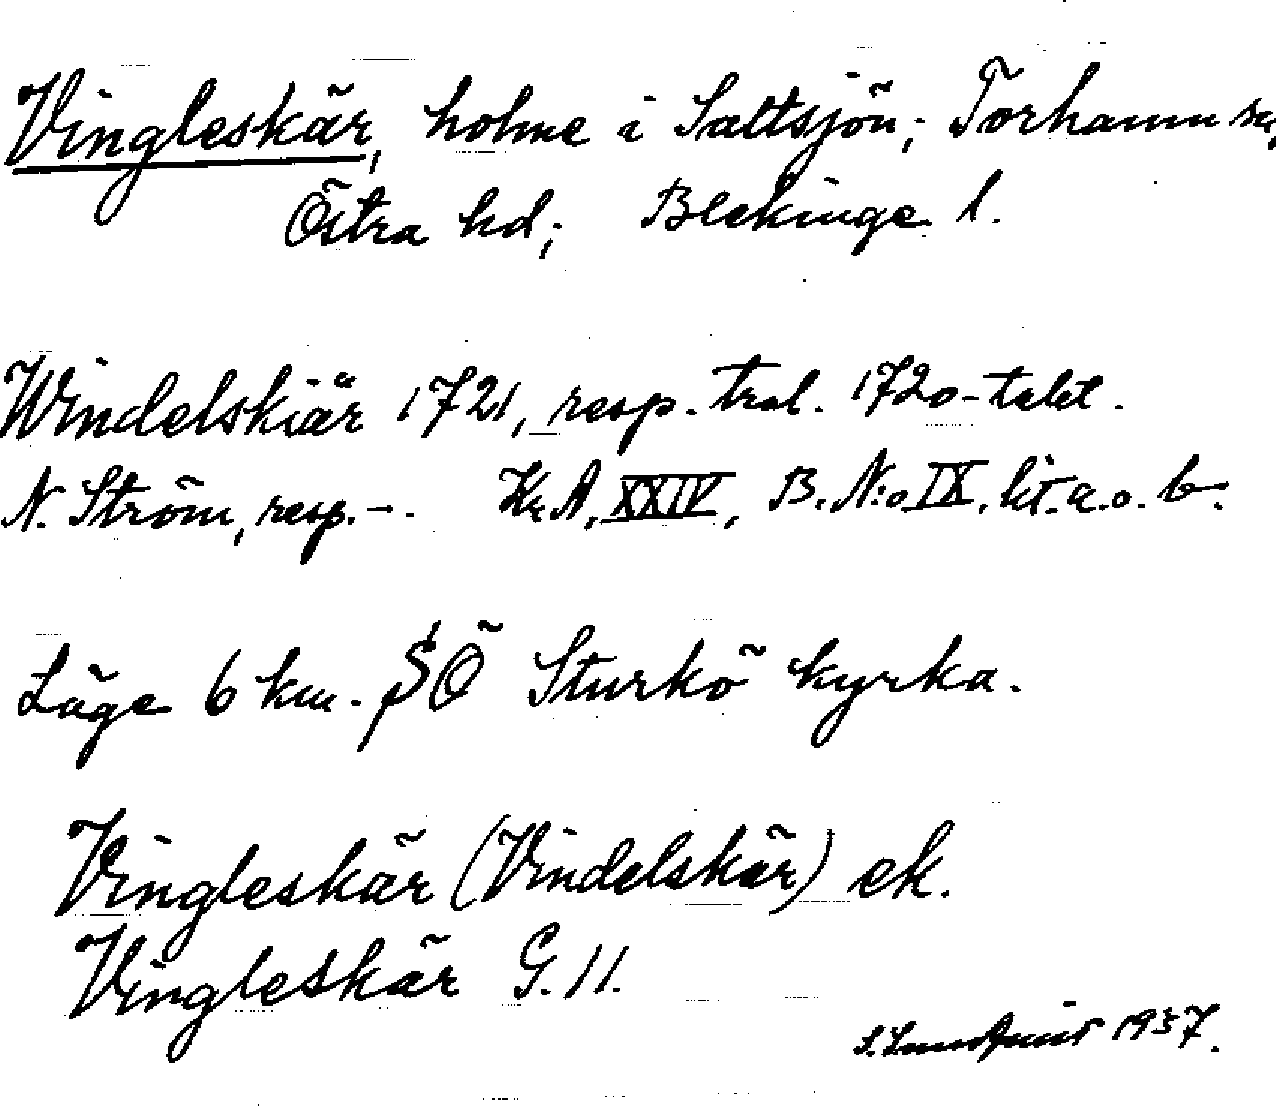 Vingleskär, holme i Saltsjön; Torhamn sn,
Östra hd; Blekinge l.
Windelskiär 1721, resp. tral. 1720-talet.
N. Ström, resp. –. Kr.A. XXIV, B. N:o IX. lit. a. o. b.
Läge 6 km. SÖ Sturkö kyrka.
Vingleskär (Vindelskär) ek.
Vingleskär G. 11.
S. Lundquist 1937.